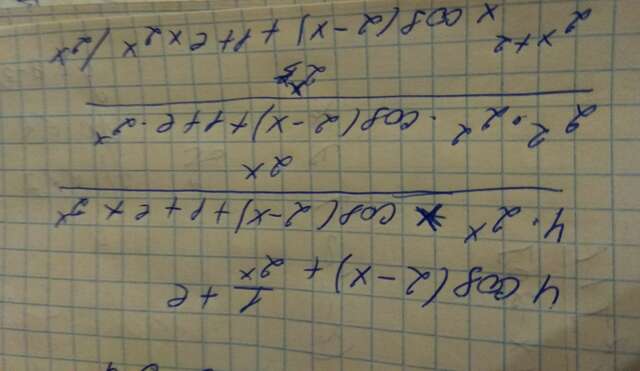 4 cos(2-x) + 1/2^x + e
4 · 2^x cos(2-x) + 1 + e x 2^x
2^x
2^2 · 2^x · cos(2-x) + 1 + e · 2^x
2^x
2^x+2 x cos(2-x) + 1 + e x 2^x / 2^x